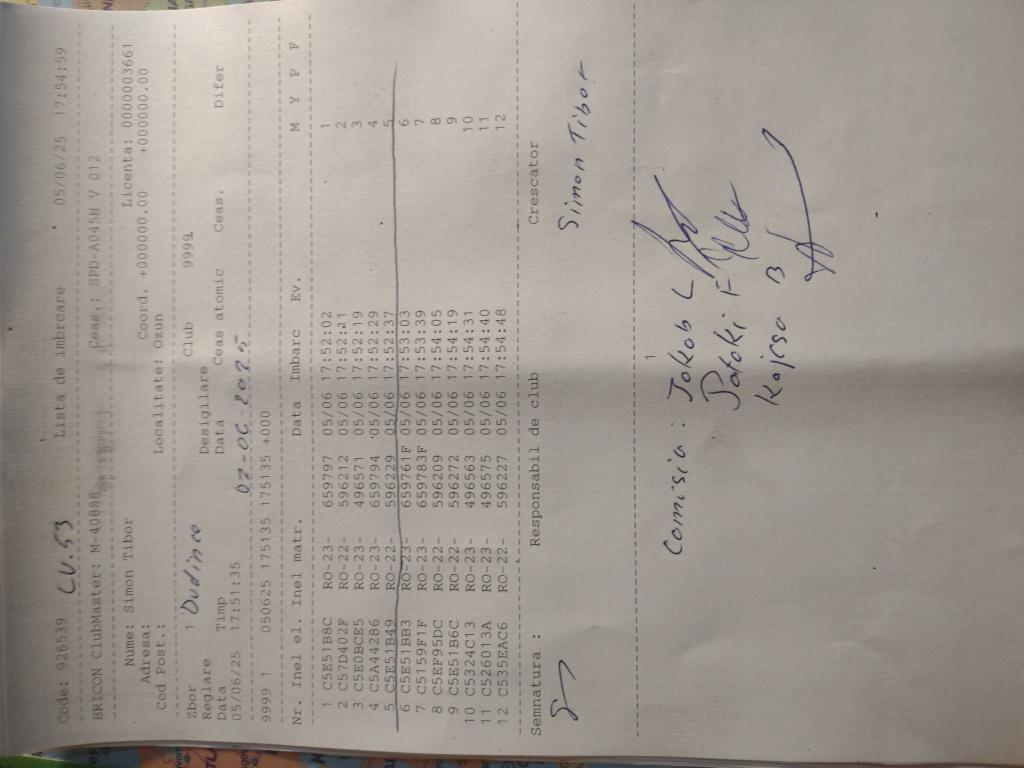 Code: 926539 CU.53 Lista de imbrcare 05/06/25 17:54:59
BRICON ClubMaster: M-40888 Ceas.: SPD-A045H V 012
Nume: Simon Tibor Licenta: 00000003661
Adresa: Coord. +000000.00 +000000.00
Cod Post.: Localitate: Ozun
Zbor 1 Dudince Club 9999
Reglare Desigilare
Data Timp Data Ceas atomic Ceas. Difer
05/06/25 17:51:35 07-06-2025
9999 1 050625 175135 175135 +000
Nr. Inel el. Inel matr. Data Imbarc Ev. M Y P F
1 C5E51B8C RO-23- 659797 05/06 17:52:02 1
2 C57D402F RO-22- 596212 05/06 17:52:11 2
3 C5E0BCE5 RO-23- 496571 05/06 17:52:19 3
4 C5A44286 RO-23- 659794 05/06 17:52:29 4
5 C5E51B49 RO-22- 596229 05/06 17:52:37 5
6 C5E51BB3 RO-23- 659761F 05/06 17:53:03 6
7 C5159F1F RO-23- 659783F 05/06 17:53:39 7
8 C5EF95DC RO-22- 596209 05/06 17:54:05 8
9 C5E51B6C RO-22- 596272 05/06 17:54:19 9
10 C5324C13 RO-23- 496563 05/06 17:54:31 10
11 C526013A RO-23- 496575 05/06 17:54:40 11
12 C535EAC6 RO-22- 596227 05/06 17:54:48 12
Semnatura : Responsabil de club Crescator
Simon Tibor
Comisia : Jakob L
Pataki F
Kajcsa B